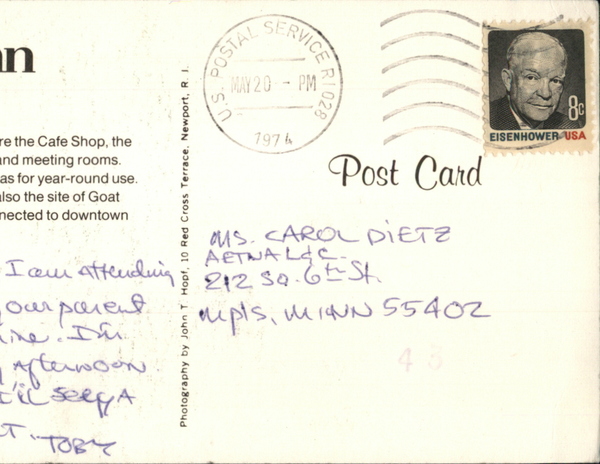 nn
re the Cafe Shop, the
and meeting rooms.
as for year-round use.
also the site of Goat
nnected to downtown
I am attending
our parent
I'm
Afternoon
I'll see ya
T. TOBY
Photography by John T. Hopf, 10 Red Cross Terrace, Newport, R. I.
U.S. POSTAL SERVICE RI 028
MAY 20 PM
1974
8c
EISENHOWER USA
Post Card
MS. CAROL DIETZ
AETNA L&C.
212 SO. 6th St.
Mpls, MINN 55402